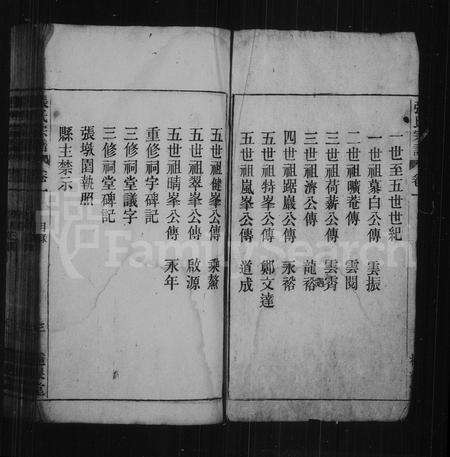 張氏宗譜
一世至五世世紀
一世祖慕白公傳 雲振
二世祖曠菴傳 雲閱
三世祖荷薪公傳 雲霄
三世祖濟公傳 龍裕
四世祖踞巖公傳 永裕
五世祖特峯公傳 鄭文達
五世祖嵐峯公傳 道成
五世祖健峯公傳 乘鰲
五世祖翠峯公傳 啟源
五世祖晴峯公傳 永年
重修祠字碑記
三修祠堂議字
三修祠堂碑記
張墩園執照
縣主禁示
目錄
FamilySearch